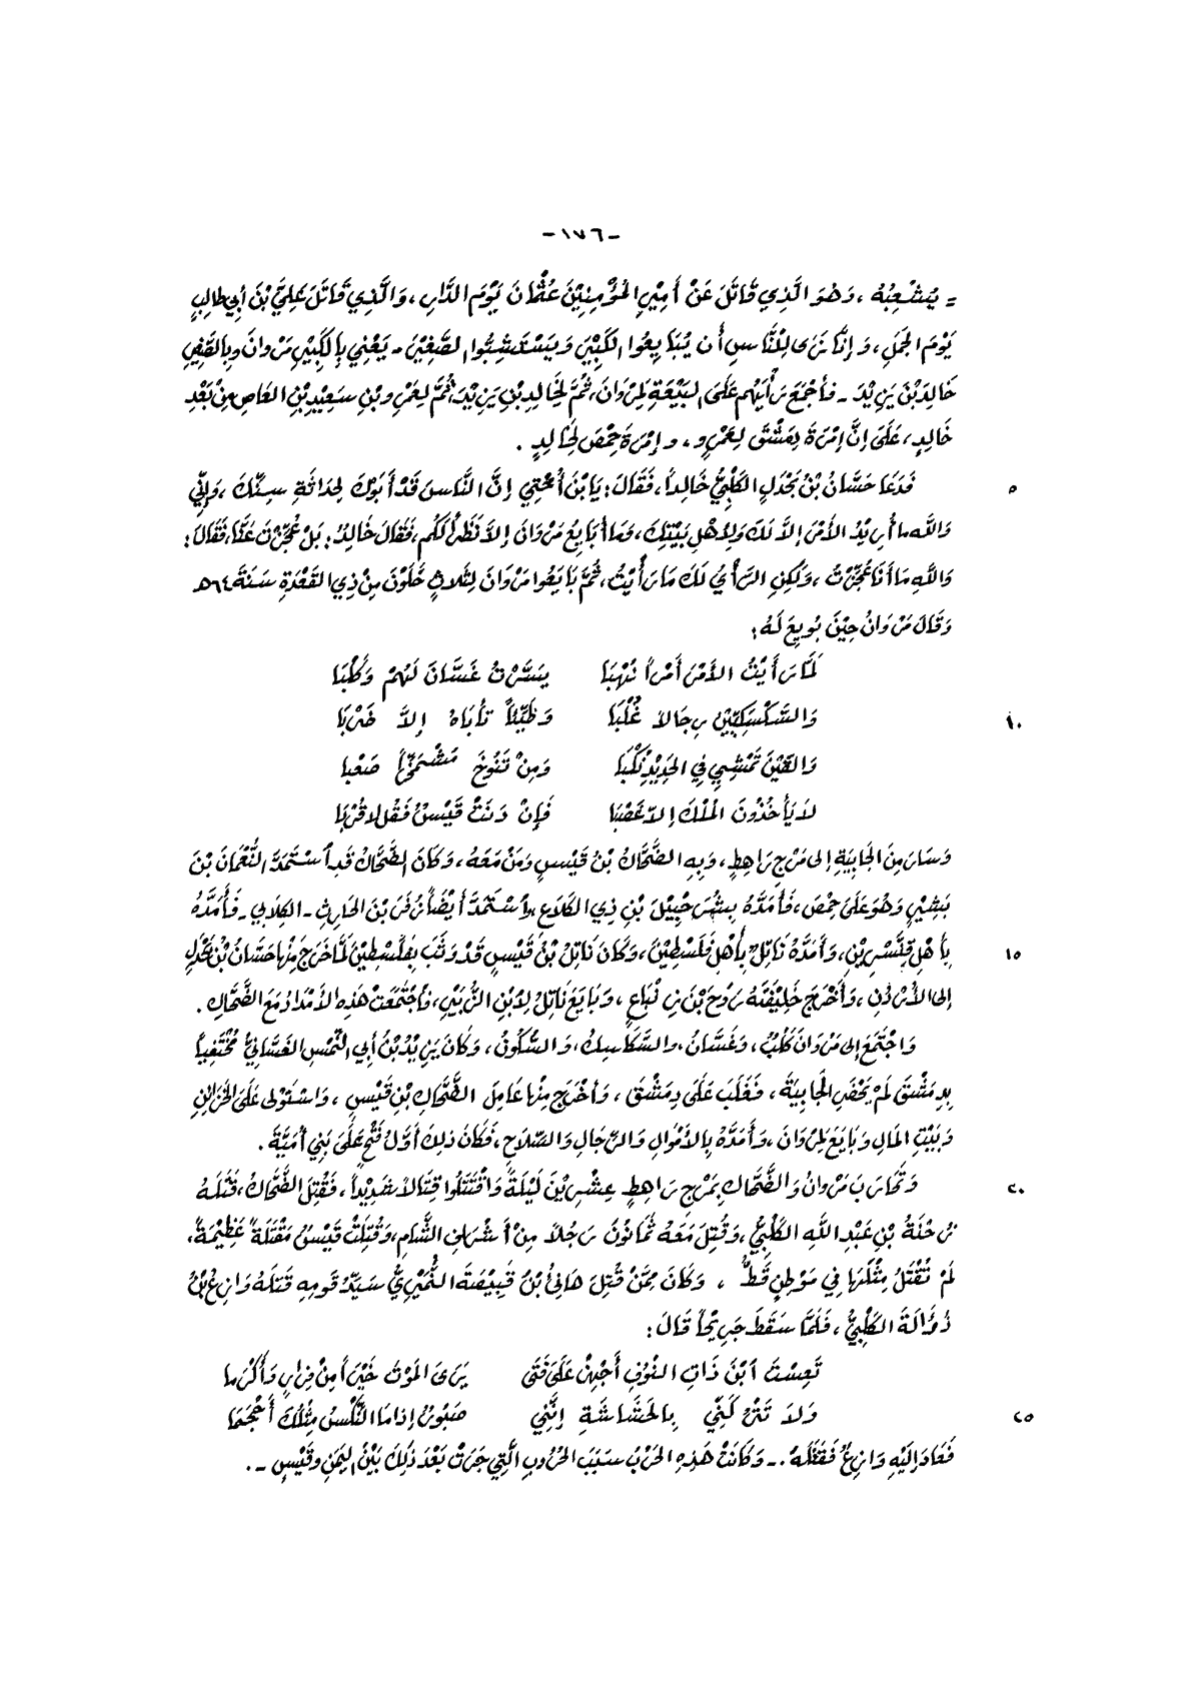 -١٧٦-
= يُشْعِبُهُ ، وَهُوَ الَّذِي قَاتَلَ عَنْ أَمِيْرِ المُؤْمِنِيْنَ عُثْمَانَ يَوْمَ الدَّارِ ، وَالَّذِي قَاتَلَ عَلِيَّ بْنَ أَبِي طَالِبٍ
يَوْمَ الجَمَلِ ، وَإِنَّا نَرَى لِلنَّاسِ أَن يُبَايِعُوا الكَبِيْرَ وَيَسْتَشِبُّوا الصَّغِيْرَ - يَعْنِي بِالكَبِيْرِ مَرْوَانَ وَبِالصَّغِيْرِ
خَالِدَ بْنَ يَزِيْدَ - فَأَجْمَعَ رَأْيُهُم عَلَى البَيْعَةِ لِمَرْوَانَ، ثُمَّ لِخَالِدِ بْنِ يَزِيْدَ، ثُمَّ لِعَمْرِو بْنِ سَعِيْدِ بْنِ العَاصِ مِنْ بَعْدِ
خَالِدٍ، عَلَى إِنَّ إِمْرَةَ دِمَشْقَ لِعَمْرٍو ، وإِمْرَةَ حِمْصَ لِخَالِدٍ .
٥ فَدَعَا حَسَّانُ بْنُ بَحْدَلٍ الكَلْبِيُّ خَالِداً، فَقَالَ: يَا بْنَ أُخْتِي إِنَّ النَّاسَ قَدْ أَبَوْكَ لِحَدَاثَةِ سِنِّكَ ، وَإِنِّي
وَاللَّهِ مَا أُرِيْدُ الأَمْرَ إِلاَّ لَكَ وَلِأَهْلِ بَيْتِكَ، وَمَا أُبَايِعُ مَرْوَانَ إِلاَّ نَظَراً لَكُم، فَقَالَ خَالِدٌ: بَلْ عَجَزْتَ عَنَّا، فَقَالَ:
وَاللَّهِ مَا أَنَا عَجَزْتُ ، وَلَكِنِ الرَّأْيُ لَكَ مَا رَأَيْتُ، ثُمَّ بَايَعُوا مَرْوَانَ لِثَلاثٍ خَلَوْنَ مِنْ ذِي القَعْدَةِ سَنَةَ ٦٤هـ
وَقَالَ مَرْوَانُ حِيْنَ بُويِعَ لَهُ:
لَمَّا رَأَيْتُ الأَمْرَ أَمْراً نَهْبَا يَسَّرْتُ غَسَّانَ لَهُمْ وَكَلْبَا
١٠ وَالسَّكْسَكِيِّيْنَ رِجَالاً غُلْبَا وَطَيِّئاً تَأْبَاهُ إِلاَّ ضَرْبَا
وَالقَيْنَ تَمْشِي فِي الحَدِيْدِ نُكْبَا وَمِنْ تَنُوخَ مُشْمَخِرّاً صَعْبا
لاَ يَأْخُذُونَ المُلْكَ إِلاَّ غَصْبَا فَإِنْ دَنَتْ قَيْسٌ فَقُل لا قُرْبَا
وَسَارَ مِنَ الجَابِيَةِ إِلى مَرْجِ رَاهِطٍ، وَبِهِ الضَّحَّاكُ بْنُ قَيْسٍ وَمَنْ مَعَهُ ، وَكَانَ الضَّحَّاكُ قَدِ اسْتَمَدَّ النُّعْمَانَ بْنَ
بَشِيْرٍ وَهُوَ عَلَى حِمْصَ، فَأَمَدَّهُ بِشُرَحْبِيْلَ بْنِ ذِي الكَلاَعِ، وَاسْتَمَدَّ أَيْضَاً زُفَرَ بْنَ الحَارِثِ - الكِلاَبِي - فَأَمَدَّهُ
١٥ بِأَهْلِ قِنَّسْرِيْنِ، وَأَمَدَّهُ نَاتِلٌ بِأَهْلِ فَلَسْطِيْنَ، وَكَانَ نَاتِلُ بْنُ قَيْسٍ قَدْ وَثَبَ بِفَلَسْطِيْنَ لَمَّا خَرَجَ مِنْهَا حَسَّانُ بْنُ بَحْدَلٍ
إِلى الأُرْدُنِ ، وَأَخْرَجَ خَلِيْفَتَهُ رَوْحَ بْنَ زِنْبَاعٍ ، وَبَايَعَ نَاتِلُ لابْنِ الزُّبَيْرِ، فَاجْتَمَعَتْ هَذِهِ الأَمْدَادُ مَعَ الضَّحَّاكِ .
وَاجْتَمَعَ إِلى مَرْوَانَ كَلْبٌ ، وَغَسَّانُ، والسَّكَاسِكُ، وَالسُّكُونُ، وَكَانَ يَزِيْدُ بْنُ أَبِي النِّمْسِ الغَسَّانِيُّ مُخْتَفِياً
بِدِمَشْقَ لَمْ يَحْضَرِ الجَابِيَةَ ، فَغَلَبَ عَلَى دِمَشْقَ ، وَأَخْرَجَ مِنْهَا عَامِلَ الضَّحَّاكِ بْنِ قَيْسٍ ، وَاسْتَوْلَى عَلَى الخَزَائِنِ
وَبَيْتِ المَالِ وَبَايَعَ لِمَرْوَانَ ، وَأَمَدَّهُ بِالأَمْوَالِ وَالرِّجَالِ وَالسِّلاَحِ، فَكَانَ ذلِكَ أَوَّلَ فَتْحٍ عَلَى بَنِي أُمَيَّةَ .
٢٠ وَتَحَارَبَ مَرْوانُ وَالضَّحَّاكُ بِمَرْجِ رَاهِطٍ عِشْرِيْنَ لَيْلَةً وَاقْتَتَلُوا قِتَالاً شَدِيْداً ، فَقُتِلَ الضَّحَّاكُ، قَتَلَهُ
زُحْنَةُ بْنِ عَبْدِ اللَّهِ الكَلْبِيُّ ، وَقُتِلَ مَعَهُ ثَمَانُونَ رَجُلاً مِنْ أَشْرَافِ الشَّامِ، وَقُتِلَتْ قَيْسُ مَقْتَلَةً عَظِيْمَةً،
لَمْ تُقْتَلُ مِثْلَهَا فِي مَوْطِنٍ قَطُّ ، وَكَانَ مِمَّنْ قُتِلَ هَانِئُ بْنُ قَبِيْصَةَ النُّمَيْرِيُّ سَيِّدُ قَومِهِ قَتَلَهُ وَازِعُ بْنُ
ذُؤَالَةَ الكَلْبِيُّ ، فَلَمَّا سَقَطَ جَرِيْحاً قَالَ:
تَعِسْتَ ابْنَ ذَاتِ النَّوْفِ أَجْهِزْ عَلَى فَتًى يَرَى المَوْتَ خَيْراً مِنْ فِرَارٍ وَأَكْرَمَا
٢٥ وَلاَ تَتْرُكَنِّي بِالحَشَاشَةِ إِنَّنِي صَبُورٌ إِذَا مَا النِّكْسُ مِثْلُكَ أَحْجَمَا
فَعَادَ إِلَيْهِ وَازِعٌ فَقَتَلَهُ. - وَكَانَتْ هَذِهِ الحَرْبُ سَبَبَ الحُرُوبِ الَّتِي جَرَتْ بَعْدَ ذَلِكَ بَيْنَ اليَمَنِ وَقَيْسٍ - .